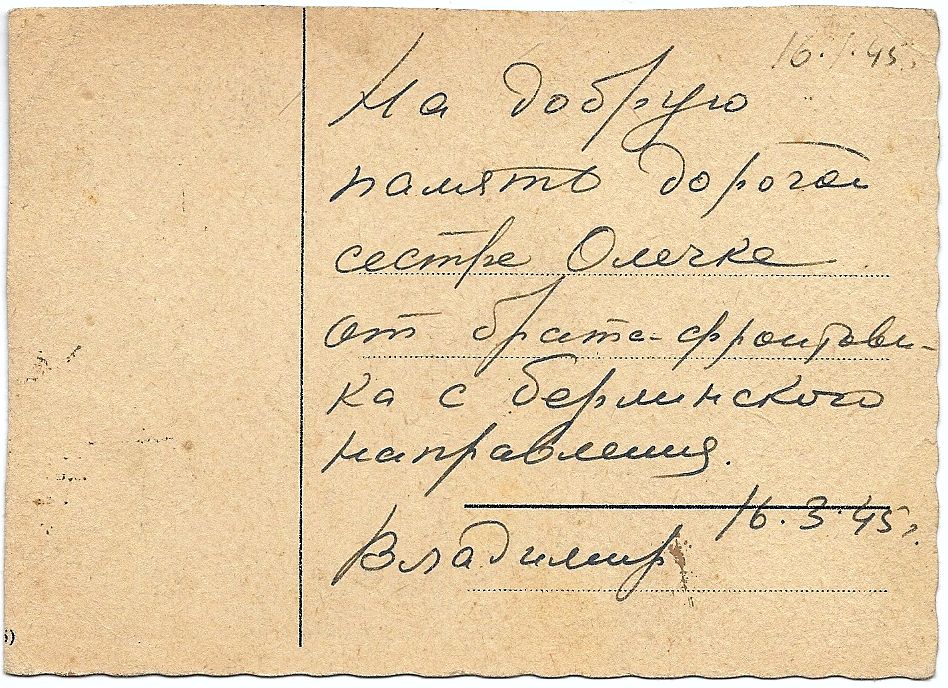 16.1.45г.
На добрую
память дорогой
сестре Олечке
от брата-фронтови-
ка с берлинского
направления.
16.3.45г.
Владимир
5)